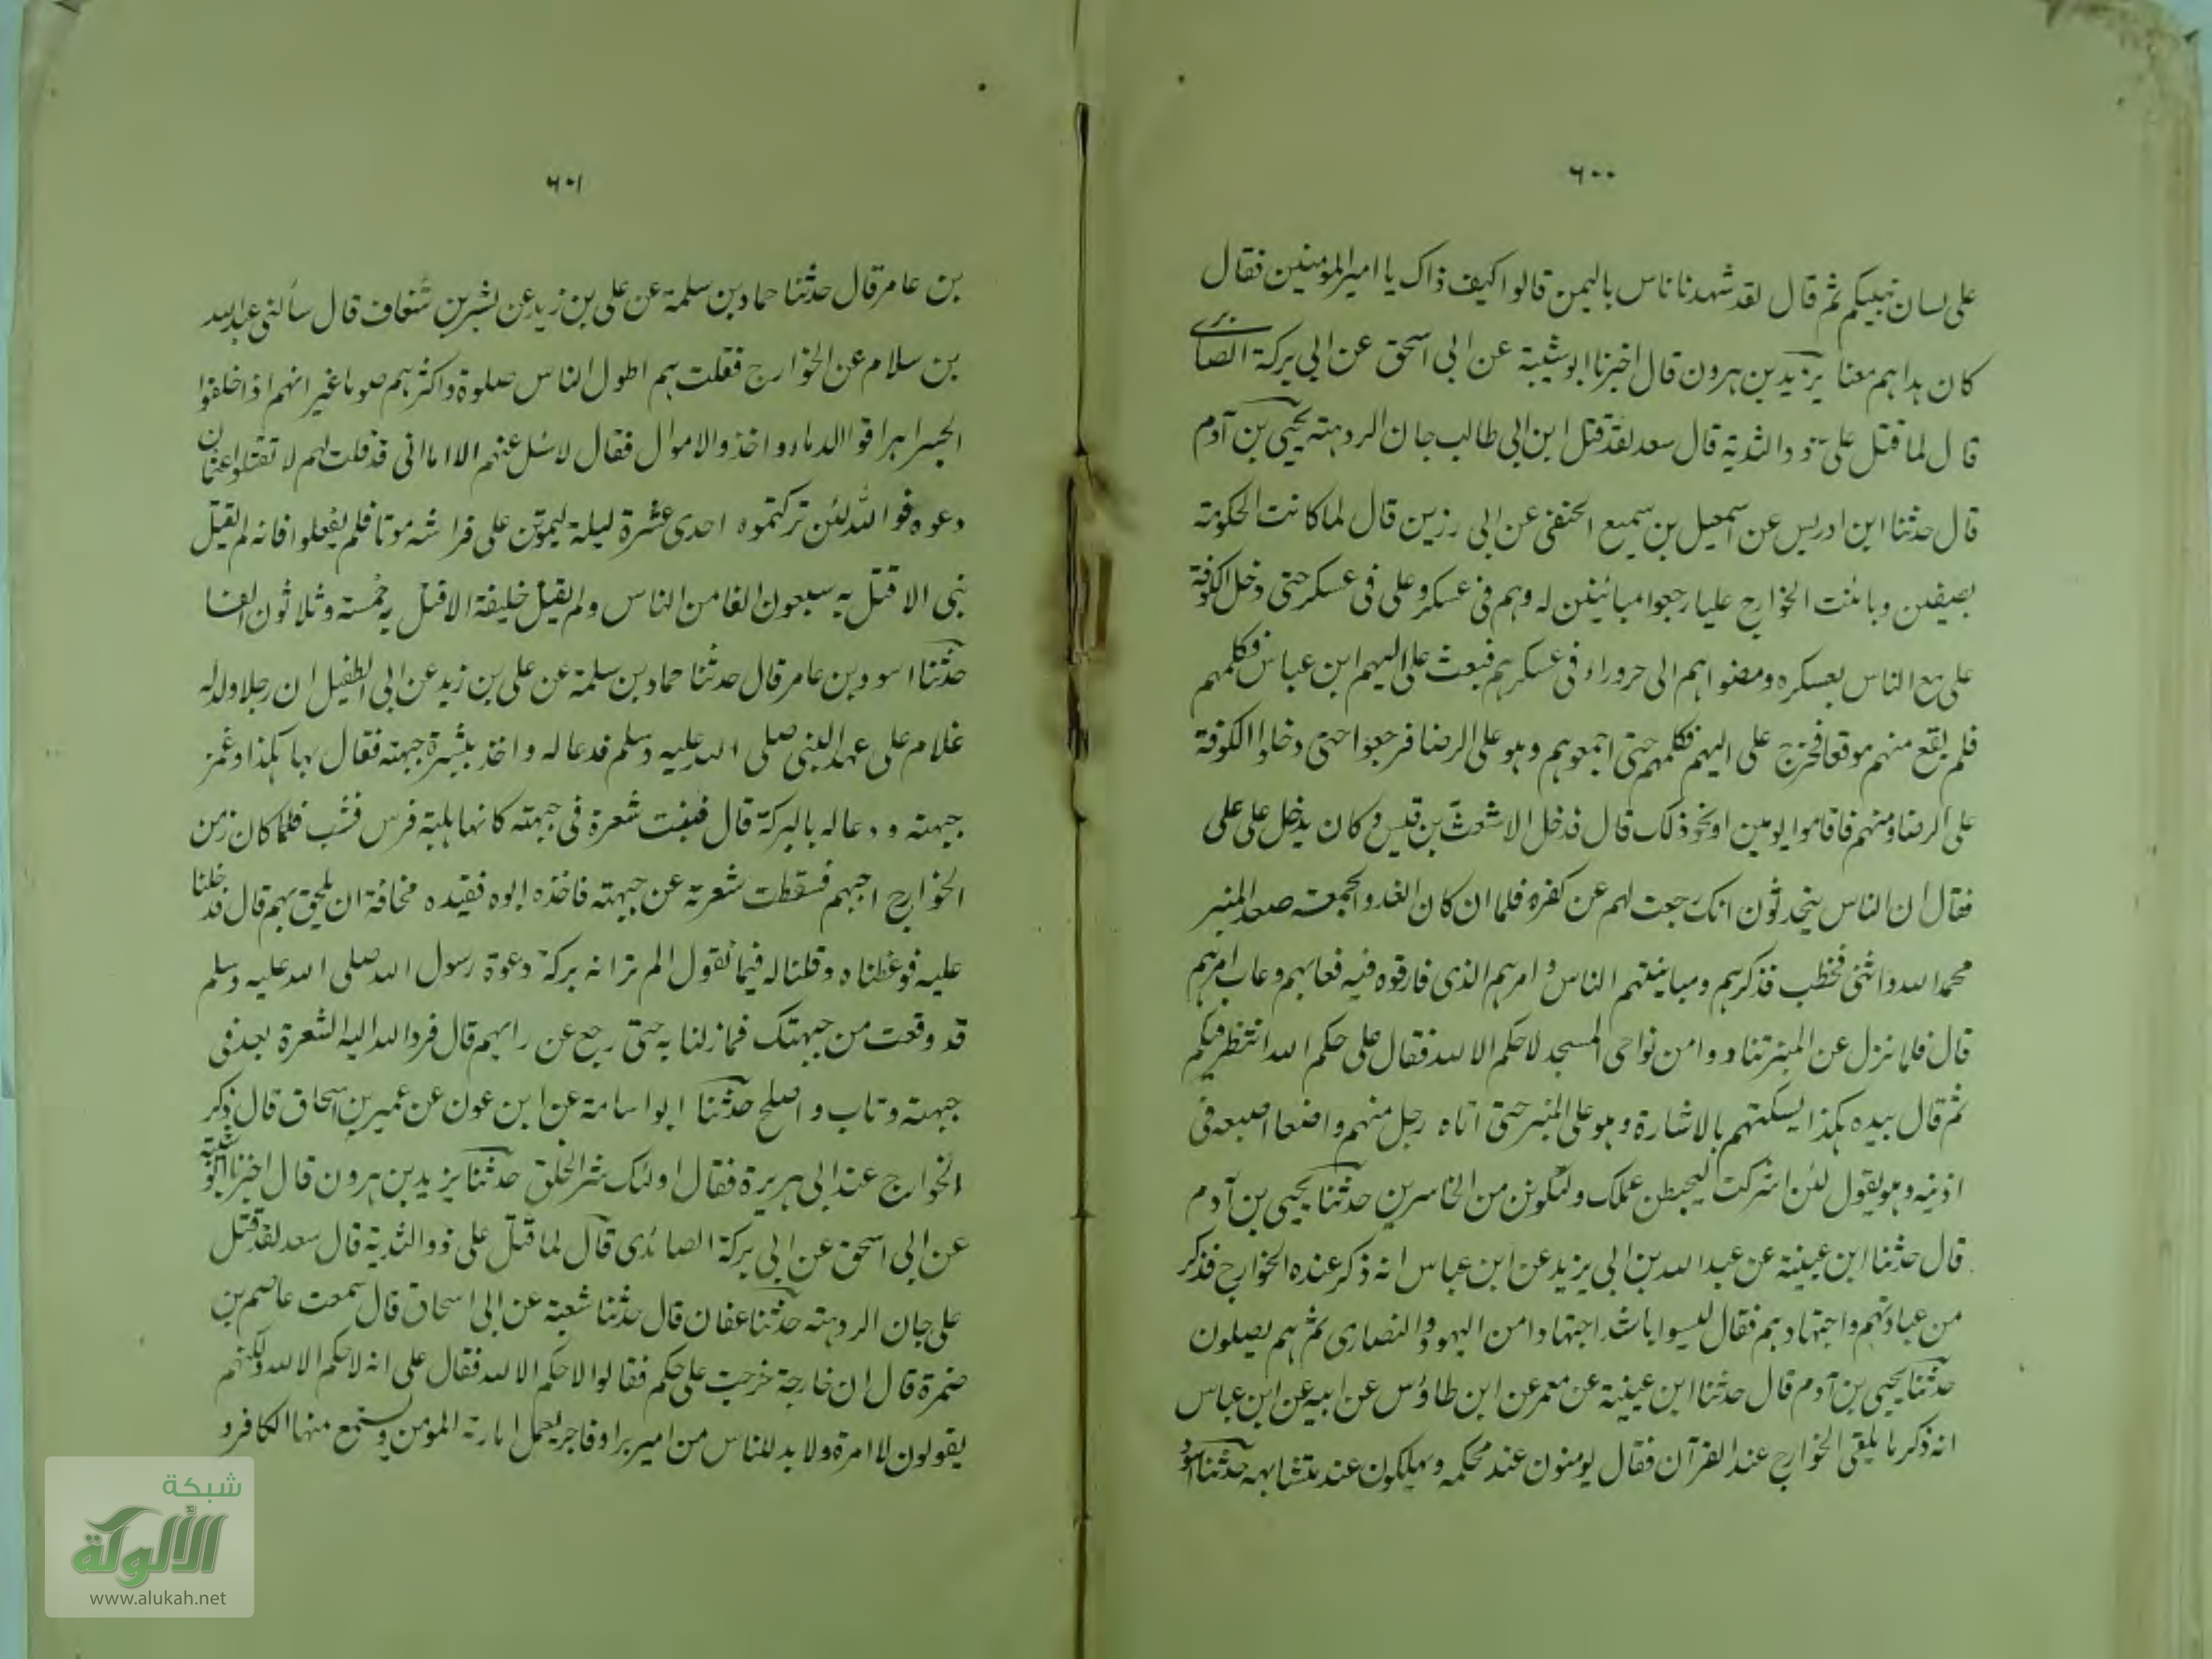 ٦٠٠
على لسان نبيكم ثم قال لقد شهدنا ناس باليمن قالوا كيف ذاك يا امير المومنين فقال
كان هداهم معنا يزيد بن هرون قال اخبرنا ابو شيبة عن ابى اسحق عن ابى بركة الصائدى
قال لما قتل على ذو الثدية قال سعد لقد قتل ابن ابى طالب جان الردهة يحيى بن آدم
قال حدثنا ابن ادريس عن اسمعيل بن سميع الحنفى عن ابى رزين قال لما كانت الحكومة
بصفين وباينت الخوارج عليا رجعوا مباينين له وهم فى عسكر وعلى فى عسكر حتى دخل الكوفة
على مع الناس بعسكره ومضوا هم الى حروراء فى عسكرهم فبعث على اليهم ابن عباس فكلمهم
فلم يقع منهم موقعا فخرج على اليهم فكلمهم حتى اجمعوا هم وهو على الرضا فرجعوا حتى دخلوا الكوفة
على الرضا ومنهم فاقاموا يومين او نحو ذلك قال فدخل الاشعث بن قيس وكان يدخل على على
فقال ان الناس يتحدثون انك رجعت لهم عن كفره فلما ان كان الغد والجمعة صعد المنبر
محمد الله واثنى فخطب فذكرهم ومباينتهم الناس وامرهم الذى فارقوه فيه فعابهم وعاب امرهم
قال فلما نزل عن المنبر تنادوا من نواحى المسجد لا حكم الا لله فقال على حكم الله انتظر فيكم
ثم قال بيده هكذا يسكتهم بالاشارة وهو على المنبر حتى اتاه رجل منهم واضعا اصبعه فى
اذنيه وهو يقول لئن اشركت ليحبطن عملك ولتكونن من الخاسرين حدثنا يحيى بن آدم
قال حدثنا ابن عيينة عن عبد الله بن ابى يزيد عن ابن عباس انه ذكر عنده الخوارج فذكر
من عبادتهم واجتهادهم فقال ليسوا باشد اجتهادا من اليهود والنصارى ثم هم يصلون
حدثنا يحيى بن آدم قال حدثنا ابن عيينة عن معمر عن ابن طاؤس عن ابيه عن ابن عباس
انه ذكر ما يلقى الخوارج عند القرآن فقال يومنون عند محكمه ويهلكون عند متشابهه حدثنا اسود
٦٠١
بن عامر قال حدثنا حماد بن سلمة عن على بن زيد عن بشر بن شغاف قال سألنى عبد الله
بن سلام عن الخوارج فقلت هم اطول الناس صلوة واكثرهم صوما غير انهم اذا خلفوا
الجسر اهراقوا الدماء واخذوا الاموال فقال لا سل عنهم الا ذا اما انى قد قلت لهم لا تقتلوا عثمان
دعوه فوالله لئن تركتموه احدى عشرة ليلة ليموتن على فراشه موتا فلم يفعلوا فانه لم يقتل
نبى الا قتل به سبعون الفا من الناس ولم يقتل خليفة الا قتل به خمسة وثلاثون الفا
حدثنا اسود بن عامر قال حدثنا حماد بن سلمة عن على بن زيد عن ابى الطفيل ان رجلا ولد له
غلام على عهد النبى صلى الله عليه وسلم فدعا له واخذ ببشرة جبهته فقال بها هكذا وغمز
جبهته ودعا له بالبركة قال فنبتت شعرة فى جبهته كانها هلبة فرس فشب فلما كان زمن
الخوارج احبهم فسقطت شعرته عن جبهته فاخذه ابوه فقيده مخافة ان يلحق بهم قال فدخلنا
عليه فوعظناه وقلنا له فيما نقول الم تر انه بركة دعوة رسول الله صلى الله عليه وسلم
قد وقعت من جبهتك فما زلنا به حتى رجع عن رايهم قال فرد الله اليه الشعرة بعد فى
جبهته وتاب واصلح حدثنا ابو اسامة عن ابن عون عن عمير بن اسحاق قال ذكر
الخوارج عند ابى هريرة فقال اولئك شر الخلق حدثنا يزيد بن هرون قال اخبرنا ابو شيبة
عن ابى اسحق عن ابى بركة الصائدى قال لما قتل على ذو الثدية قال سعد لقد قتل
على جان الردهة حدثنا عفان قال حدثنا شعبة عن ابى اسحاق قال سمعت عاصم بن
ضمرة قال ان خارجة خرجت على حكم فقالوا لا حكم الا لله فقال على انه لا حكم الا لله ولكنهم
يقولون لا امرة ولا بد للناس من امير بر او فاجر يعمل امارته المومن ويستمتع منها الكافر و
شبكة
الألوكة
www.alukah.net